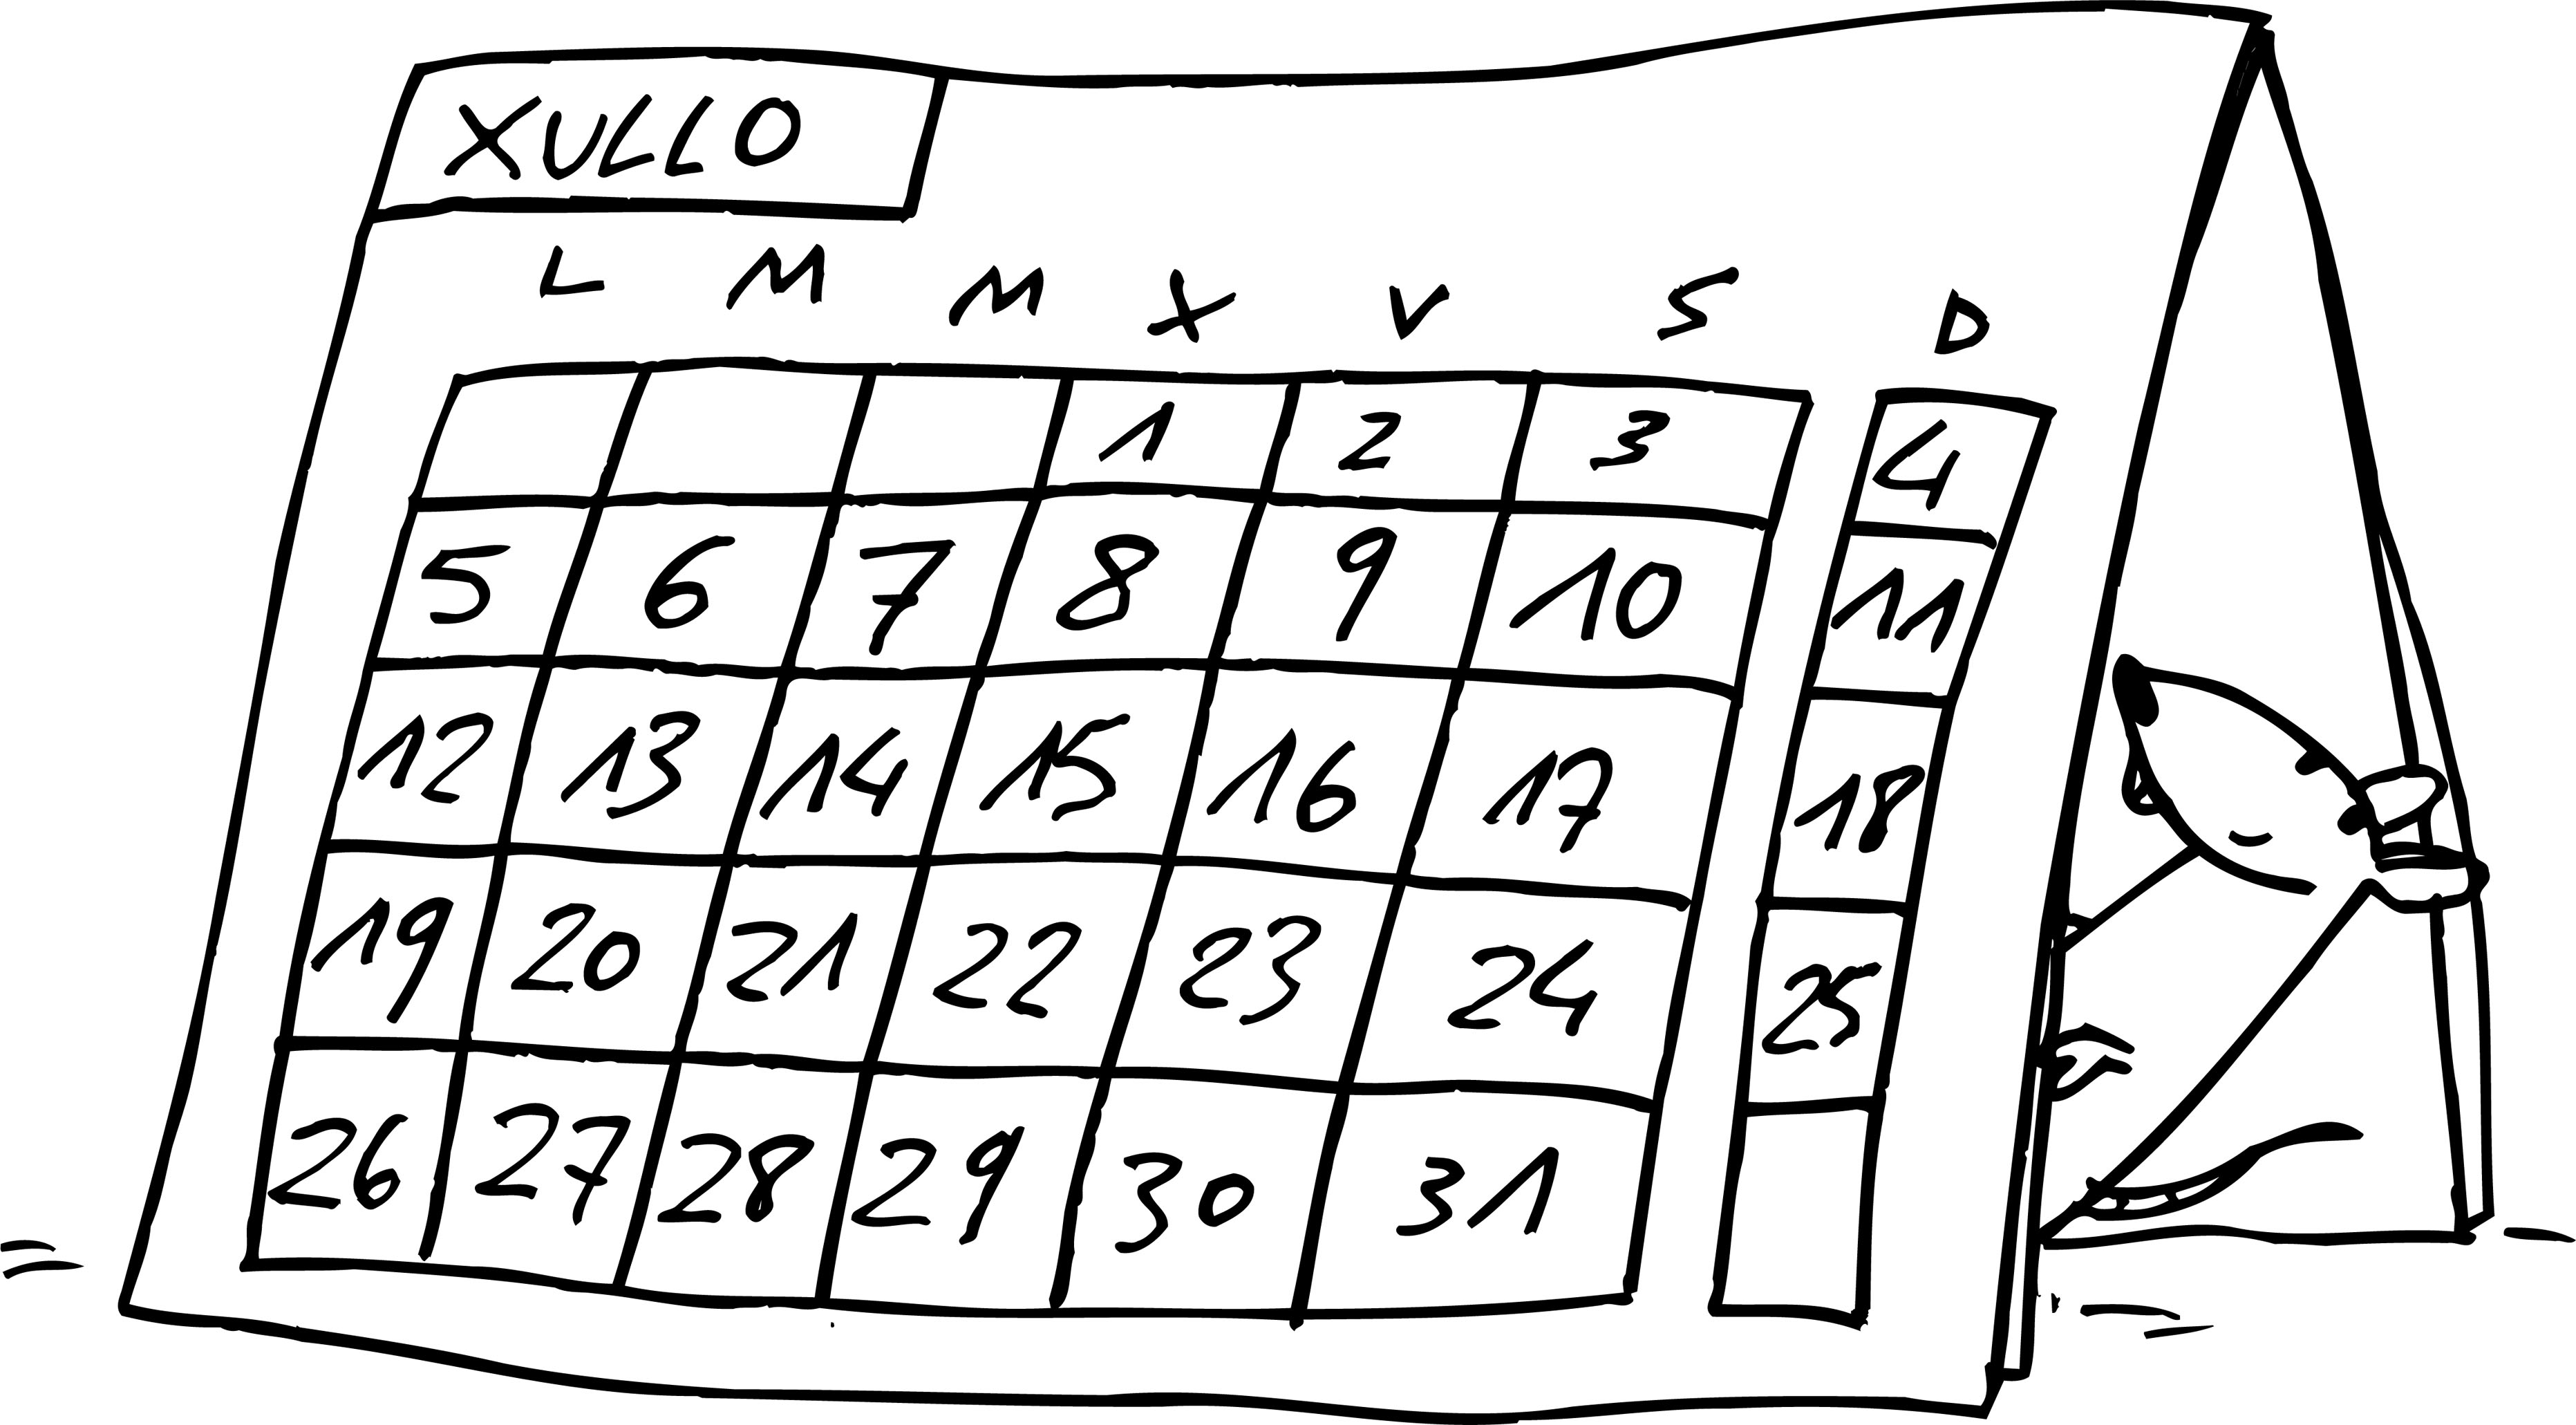 XULLO
L M M X V S D
1 2 3 4
5 6 7 8 9 10 11
12 13 14 15 16 17 18
19 20 21 22 23 24 25
26 27 28 29 30 31